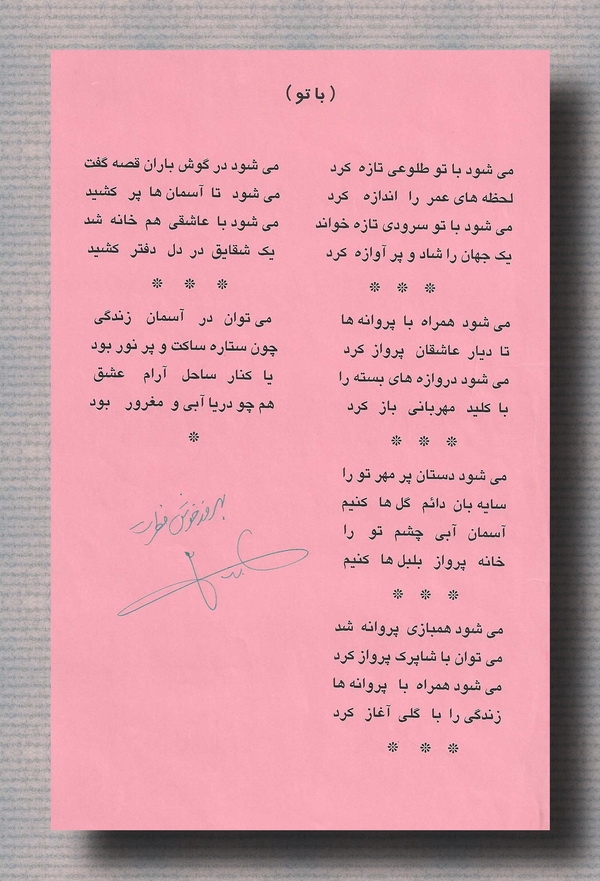 ( با تو )
می شود با تو طلوعی تازه کرد
لحظه های عمر را اندازه کرد
می شود با تو سرودی تازه خواند
یک جهان را شاد و پر آوازه کرد
❊ ❊ ❊
می شود همراه با پروانه ها
تا دیار عاشقان پرواز کرد
می شود دروازه های بسته را
با کلید مهربانی باز کرد
❊ ❊ ❊
می شود دستان پر مهر تو را
سایه بان دائم گل ها کنیم
آسمان آبی چشم تو را
خانه پرواز بلبل ها کنیم
❊ ❊ ❊
می شود همبازی پروانه شد
می توان با شاپرک پرواز کرد
می شود همراه با پروانه ها
زندگی را با گلی آغاز کرد
❊ ❊ ❊
می شود در گوش باران قصه گفت
می شود تا آسمان ها پر کشید
می شود با عاشقی هم خانه شد
یک شقایق در دل دفتر کشید
❊ ❊ ❊
می توان در آسمان زندگی
چون ستاره ساکت و پر نور بود
یا کنار ساحل آرام عشق
هم چو دریا آبی و مغرور بود
❊
بهروز خوش فطرت